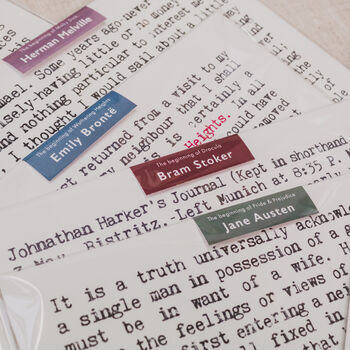 The beginning of Moby Dick
Herman Melville
Some years ago never
nothing particular to interest me
thought I would sail about a little
The beginning of Wuthering Heights
Emily Brontë
just returned from a visit to my
neighbour that I shall
certainly a
Heights. In
could have
The beginning of Dracula
Bram Stoker
Johnathan Harker's Journal (Kept in shorthand
3 May. Bistritz. Left Munich at 8:35 P.
The beginning of Pride & Prejudice
Jane Austen
It is a truth universally acknowle
a single man in possession of a g
must be in want of a wife. H
the feelings or views of
first entering a nei
fixed in